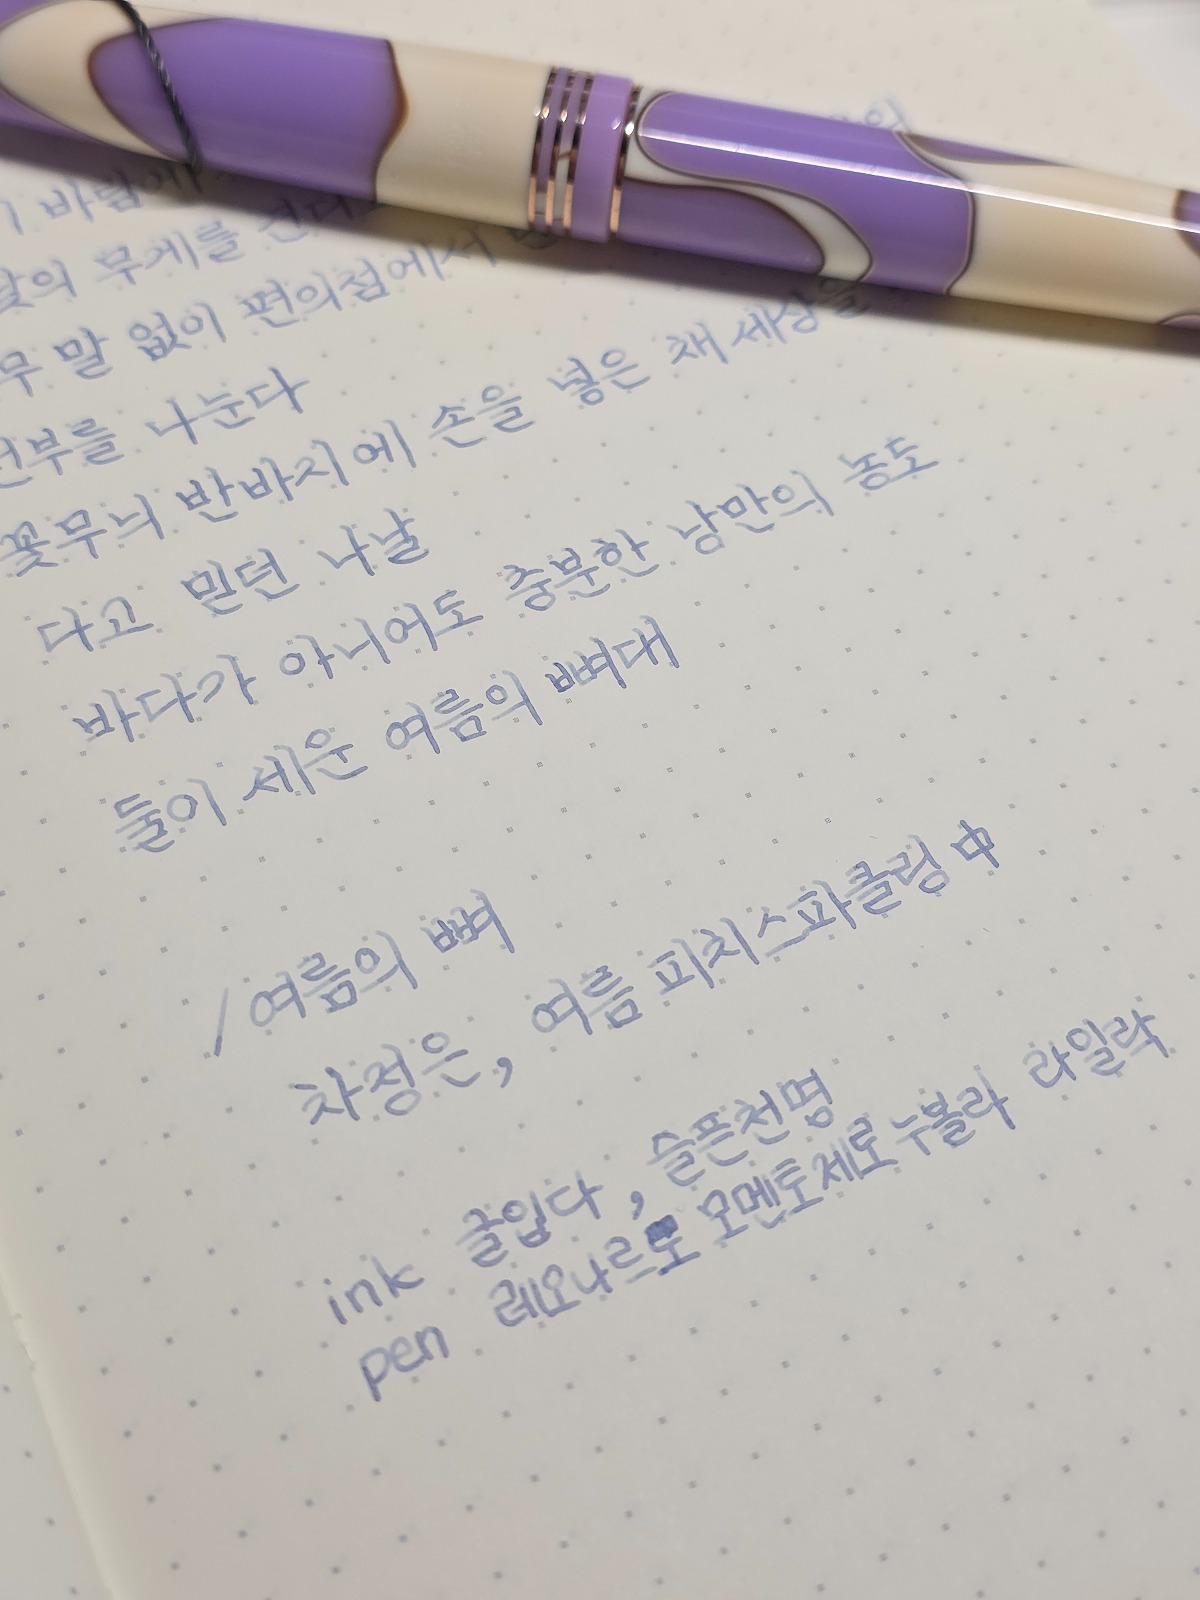 바람에
의 무게를 견디
무 말 없이 편의점에서
전부를 나눈다
꽃무늬 반바지에 손을 넣은 채 세상을
다고 믿던 나날
바다가 아니어도 충분한 낭만의 농도
둘이 세운 여름의 뼈대
/여름의 뼈
차정은, 여름 피치스파클링 中
ink 글입다, 슬픈천명
pen 레오나르도 모멘토제로 누볼라 라일락